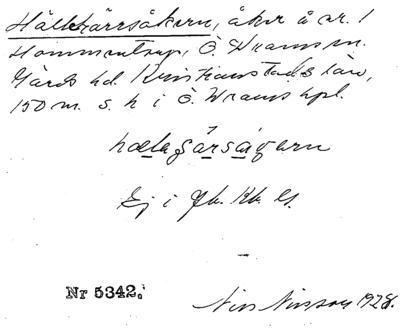 Hällekärrsåkern, åker å nr. 1
Hommentorp, Ö. Vrams sn.
Gärds hd. Kristianstads län,
150 m. s. h i Ö. Vrams kpl.
hælagársågarn
Ej i Gk. Kk. El.
Nr 5342.
Nils Nilsson 1928.